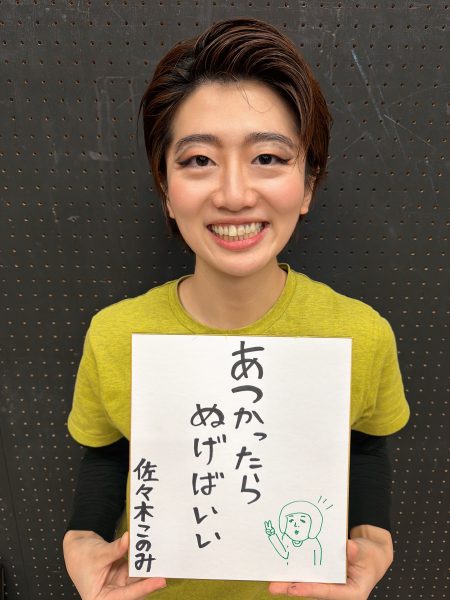 あつかったら
ぬげばいい
佐々木このみ